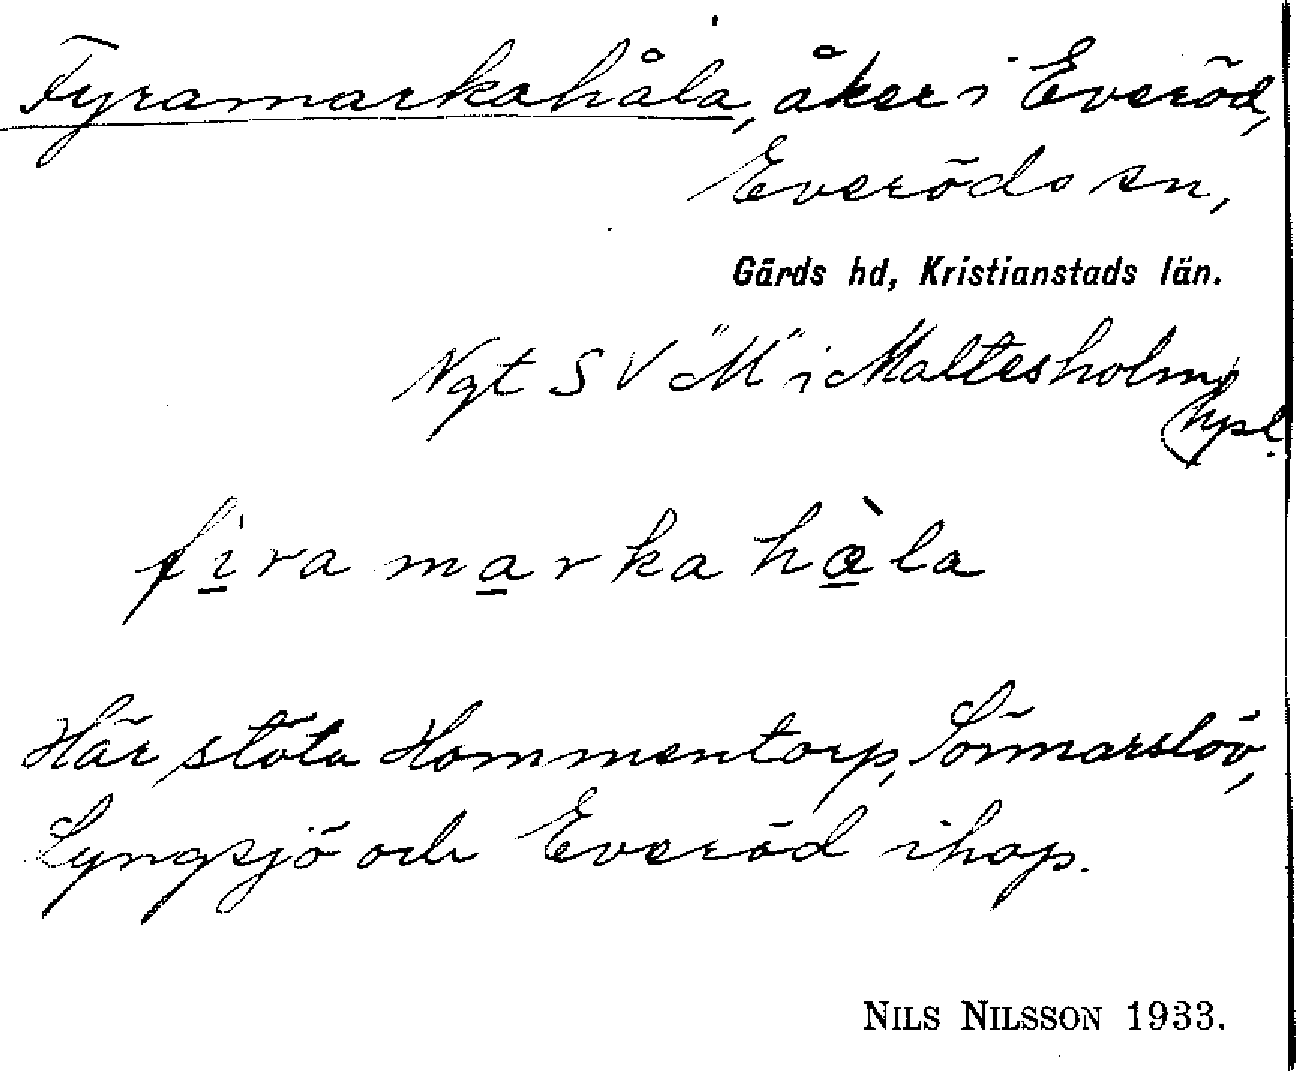 Fyramarkahåla, åker i Everöd,
Everöds sn,
Gärds hd, Kristianstads län.
Ngt SV "M" i Maltesholm,
hpl.
firamarkahàla
Här stöta Hommentorp, Sönnarslöv,
Lyngsjö och Everöd ihop.
NILS NILSSON 1933.